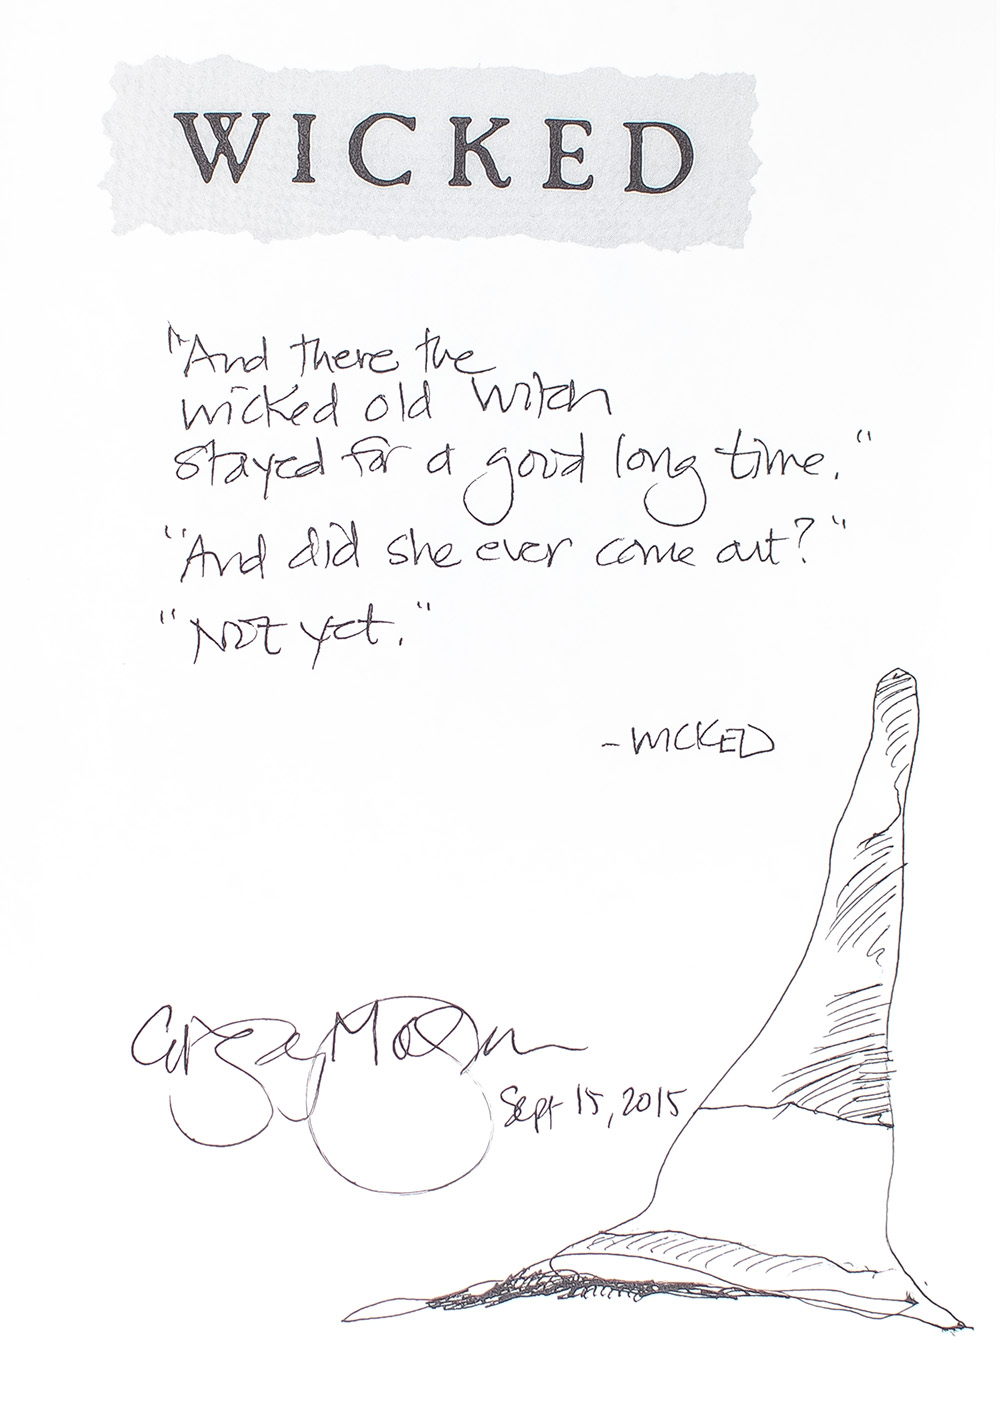 WICKED
"And there the
wicked old witch
stayed for a good long time."
"And did she ever come out?"
"Not yet."
- WICKED
Gregory Maguire
Sept 15, 2015